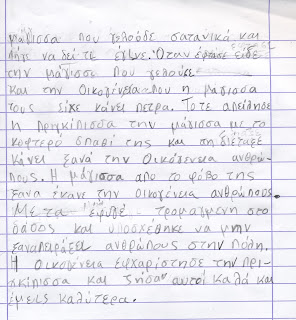 μάγισσα που γελούσε σατανικά και
πήγε να δει τι έγινε. Όταν έφτασε είδε
την μάγισσα που γελούσε
και την οικογένεια που η μάγισσα
τους είχε κάνει πέτρα. Τότε απείλησε
η πριγκίπισσα την μάγισσα με το
κοφτερό σπαθί της και τη διέταξε
κάνει ξανά την οικογένεια ανθρώ-
πους. Η μάγισσα από το φόβο της
ξανα έκανε την οικογένεια ανθρώπους.
Μετα έφυγε τρομαγμένη στο
δάσος και υποσχέθηκε να μην
ξαναπειράξει ανθρώπους στην πόλη.
Η οικογένεια ευχαρίστησε την πρι-
γκίπισσα και ζήσαν αυτοί καλά και
εμείς καλύτερα.